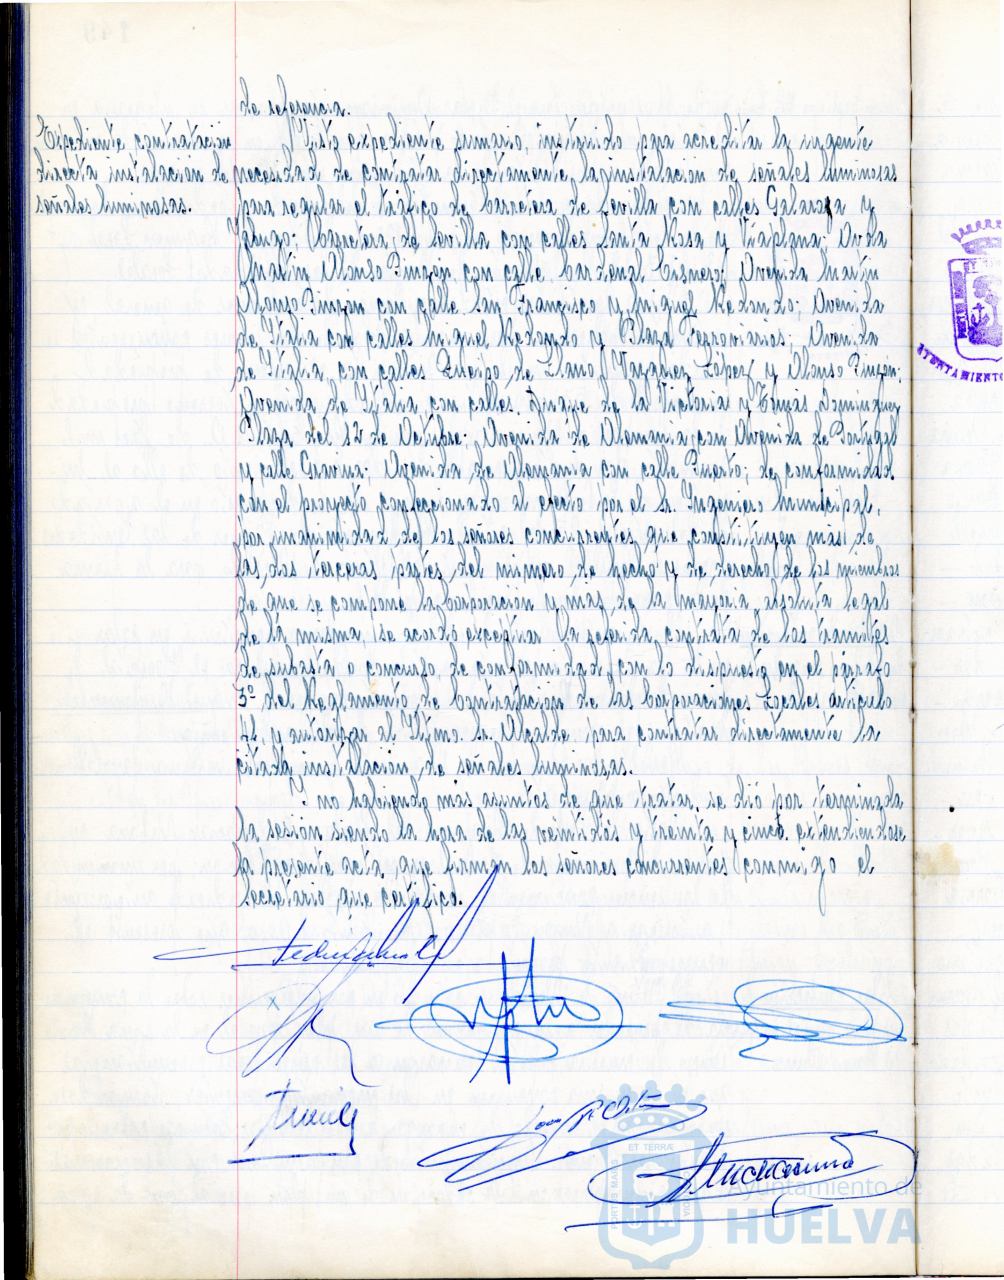 de referencia.
Expediente contratación
directa instalación de
señales luminosas.
Visto expediente sumario, instruido para acreditar la urgente
necesidad de contratar directamente la instalacion de señales luminosas
para regular el tráfico de Carretera de Sevilla con calles Galaroza y
Carretera de Sevilla con calles Santa Rosa y Viaplana; Avda
Martin Alonso Pinzon, con calle Cardenal Cisneros; Avenida Martin
Alonso Pinzon con calle San Francisco y Miguel Redondo; Avenida
de Italia con calles Miguel Redondo y Plaza Ferroviarios; Avenida
de Italia, con calles Queipo de Llano, Vazquez López y Alonso Pinzón;
Avenida de Italia, con calles Duque de la Victoria y Tomas Dominguez
Plaza del 12 de Octubre; Avenida de Alemania con Avenida de Portugal
y calle Gravina; Avenida de Alemania con calle Puerto; de conformidad
con el proyecto confeccionado al efecto por el Sr. Ingeniero Municipal,
por unanimidad de los señores concurrentes que constituyen más de
las dos terceras partes del número de hecho y de derecho de los miembros
de que se compone la Corporación y mas de la mayoria absoluta legal
de la misma, se acordó exceptuar la referida contrata de los tramites
de subasta o concurso, de conformidad con lo dispuesto en el párrafo
3º del Reglamento de Contratacion de las Corporaciones Locales artículo
41, y autorizar al Iltmo. Sr. Alcalde para contratar directamente la
citada instalación de señales luminosas.
Y no habiendo más asuntos de que tratar, se dió por terminada
la sesion siendo la hora de las veintidós y treinta y cinco extendiendose
la presente acta, que firman los señores concurrentes conmigo el
Secretario que certifico.
ET TERRÆ
PORTUS MARIS
CUSTODIA
Ayuntamiento de
HUELVA